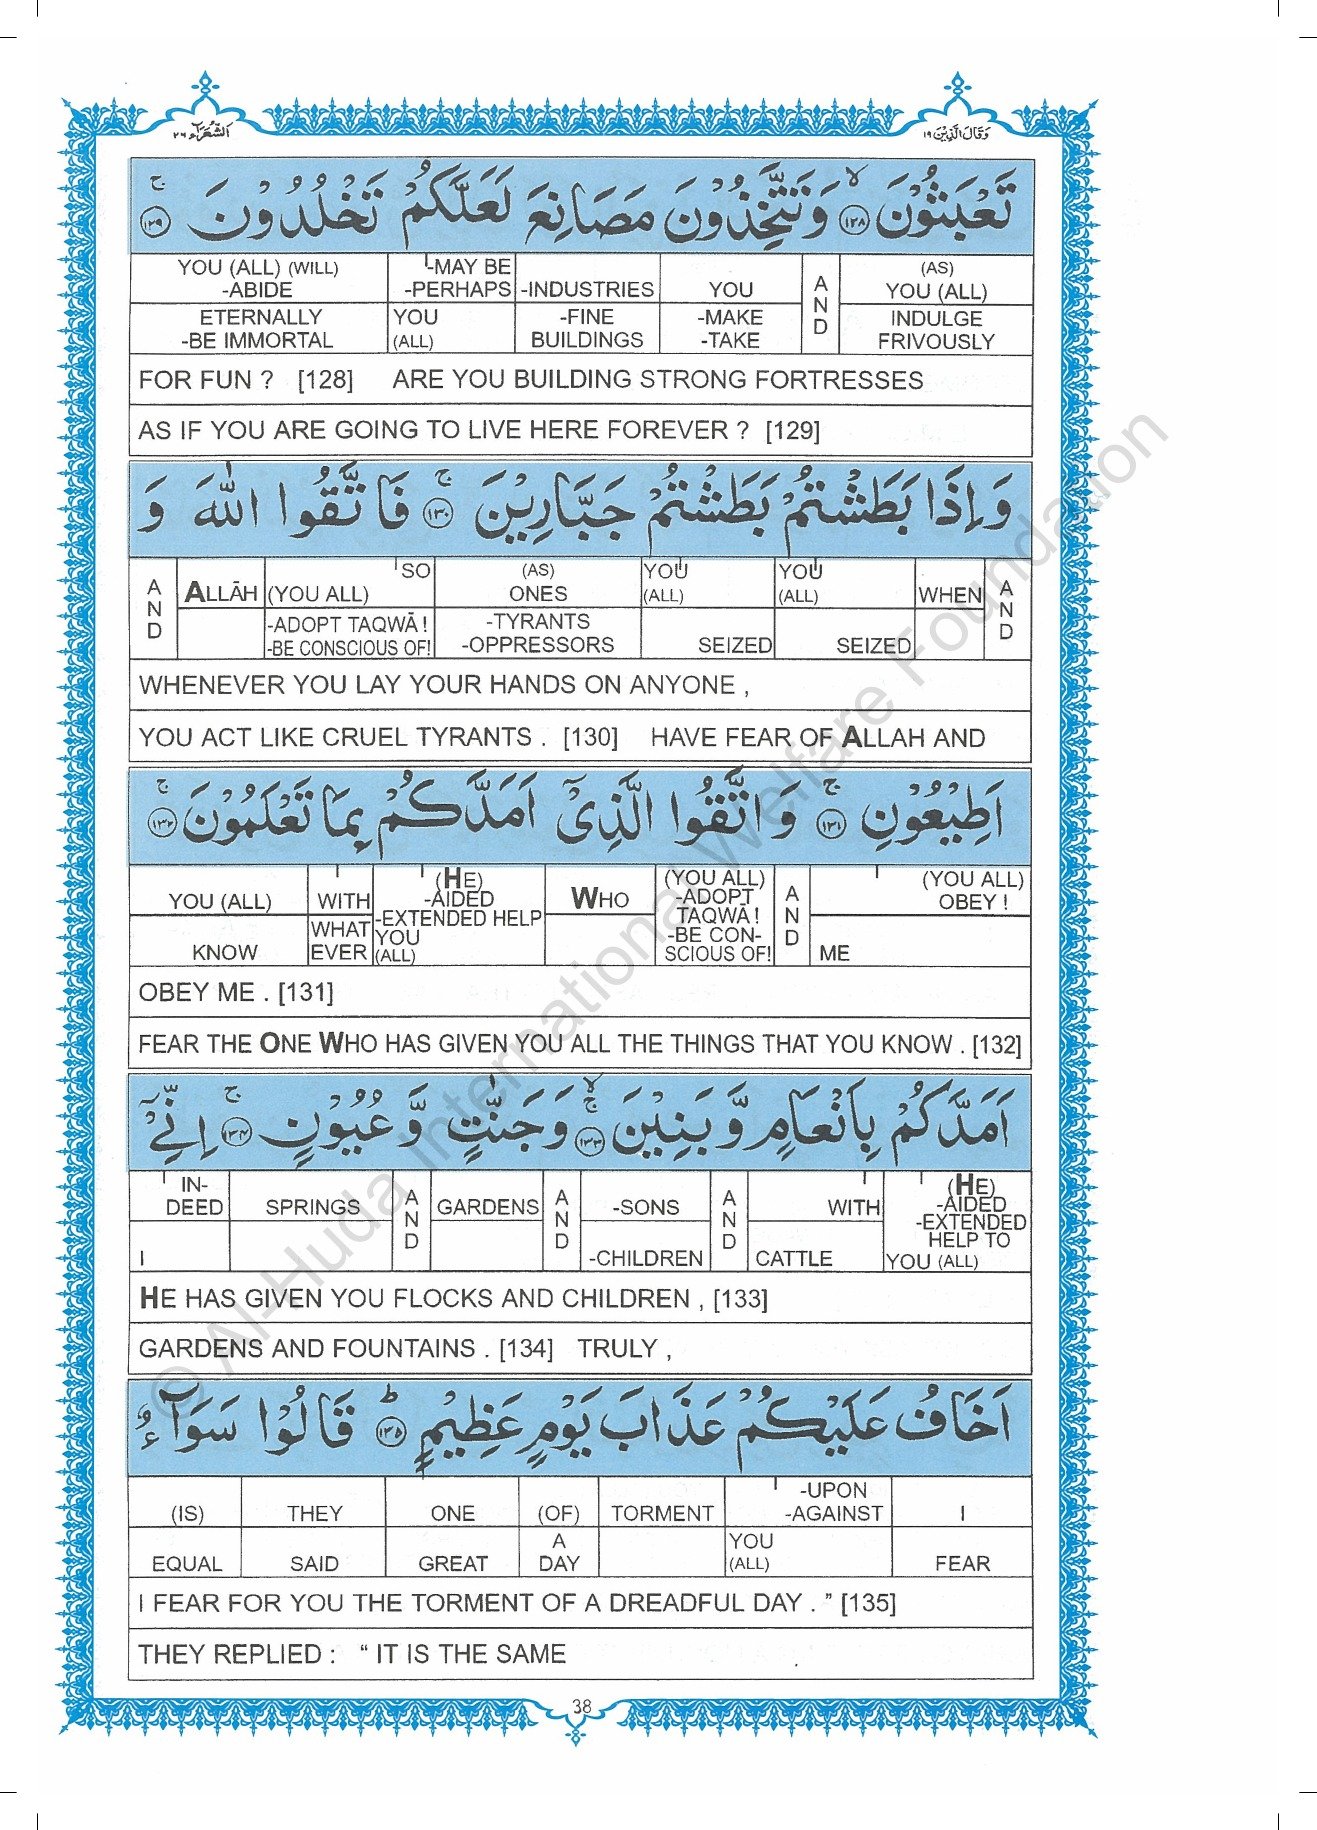 وَقَالَ الَّذِیْنَ ١٩
اَلشُّعَرَآء ٢٦
تَعْبَثُوْنَ ﴿١٢٨﴾ۙ وَ تَتَّخِذُوْنَ مَصَانِعَ لَعَلَّكُمْ تَخْلُدُوْنَ ﴿١٢٩﴾ۚ
YOU (ALL) (WILL) -MAY BE (AS)
-ABIDE -PERHAPS -INDUSTRIES YOU AND YOU (ALL)
ETERNALLY YOU -FINE -MAKE INDULGE
-BE IMMORTAL (ALL) BUILDINGS -TAKE FRIVOUSLY
FOR FUN ? [128] ARE YOU BUILDING STRONG FORTRESSES
AS IF YOU ARE GOING TO LIVE HERE FOREVER ? [129]
وَ اِذَا بَطَشْتُمْ بَطَشْتُمْ جَبَّارِیْنَ ﴿١٣٠﴾ۚ فَاتَّقُوا اللّٰهَ وَ
SO (AS) YOU YOU
AND ALLĀH (YOU ALL) ONES (ALL) (ALL) WHEN AND
-ADOPT TAQWĀ ! -TYRANTS
-BE CONSCIOUS OF! -OPPRESSORS SEIZED SEIZED
WHENEVER YOU LAY YOUR HANDS ON ANYONE ,
YOU ACT LIKE CRUEL TYRANTS . [130] HAVE FEAR OF ALLAH AND
اَطِیْعُوْنِ ﴿١٣١﴾ۚ وَ اتَّقُوا الَّذِیْۤ اَمَدَّكُمْ بِمَا تَعْلَمُوْنَ ﴿١٣٢﴾ۚ
(HE) (YOU ALL) (YOU ALL)
YOU (ALL) WITH -AIDED WHO -ADOPT AND OBEY !
WHAT -EXTENDED HELP TAQWĀ !
YOU -BE CON-
KNOW EVER (ALL) SCIOUS OF! ME
OBEY ME . [131]
FEAR THE ONE WHO HAS GIVEN YOU ALL THE THINGS THAT YOU KNOW . [132]
اَمَدَّكُمْ بِاَنْعَامٍ وَّ بَنِیْنَ ﴿١٣٣﴾ۚۙ وَ جَنّٰتٍ وَّ عُیُوْنٍ ﴿١٣٤﴾ۚ اِنِّیْۤ
IN- (HE)
DEED SPRINGS AND GARDENS AND -SONS AND WITH -AIDED
-EXTENDED
HELP TO
I -CHILDREN CATTLE YOU (ALL)
HE HAS GIVEN YOU FLOCKS AND CHILDREN , [133]
GARDENS AND FOUNTAINS . [134] TRULY ,
اَخَافُ عَلَیْكُمْ عَذَابَ یَوْمٍ عَظِیْمٍ ﴿١٣٥﴾ؕ قَالُوْا سَوَآءٌ
-UPON
(IS) THEY ONE (OF) TORMENT -AGAINST I
A YOU
EQUAL SAID GREAT DAY (ALL) FEAR
I FEAR FOR YOU THE TORMENT OF A DREADFUL DAY . ” [135]
THEY REPLIED : “ IT IS THE SAME
38
© Al-Huda International Welfare Foundation